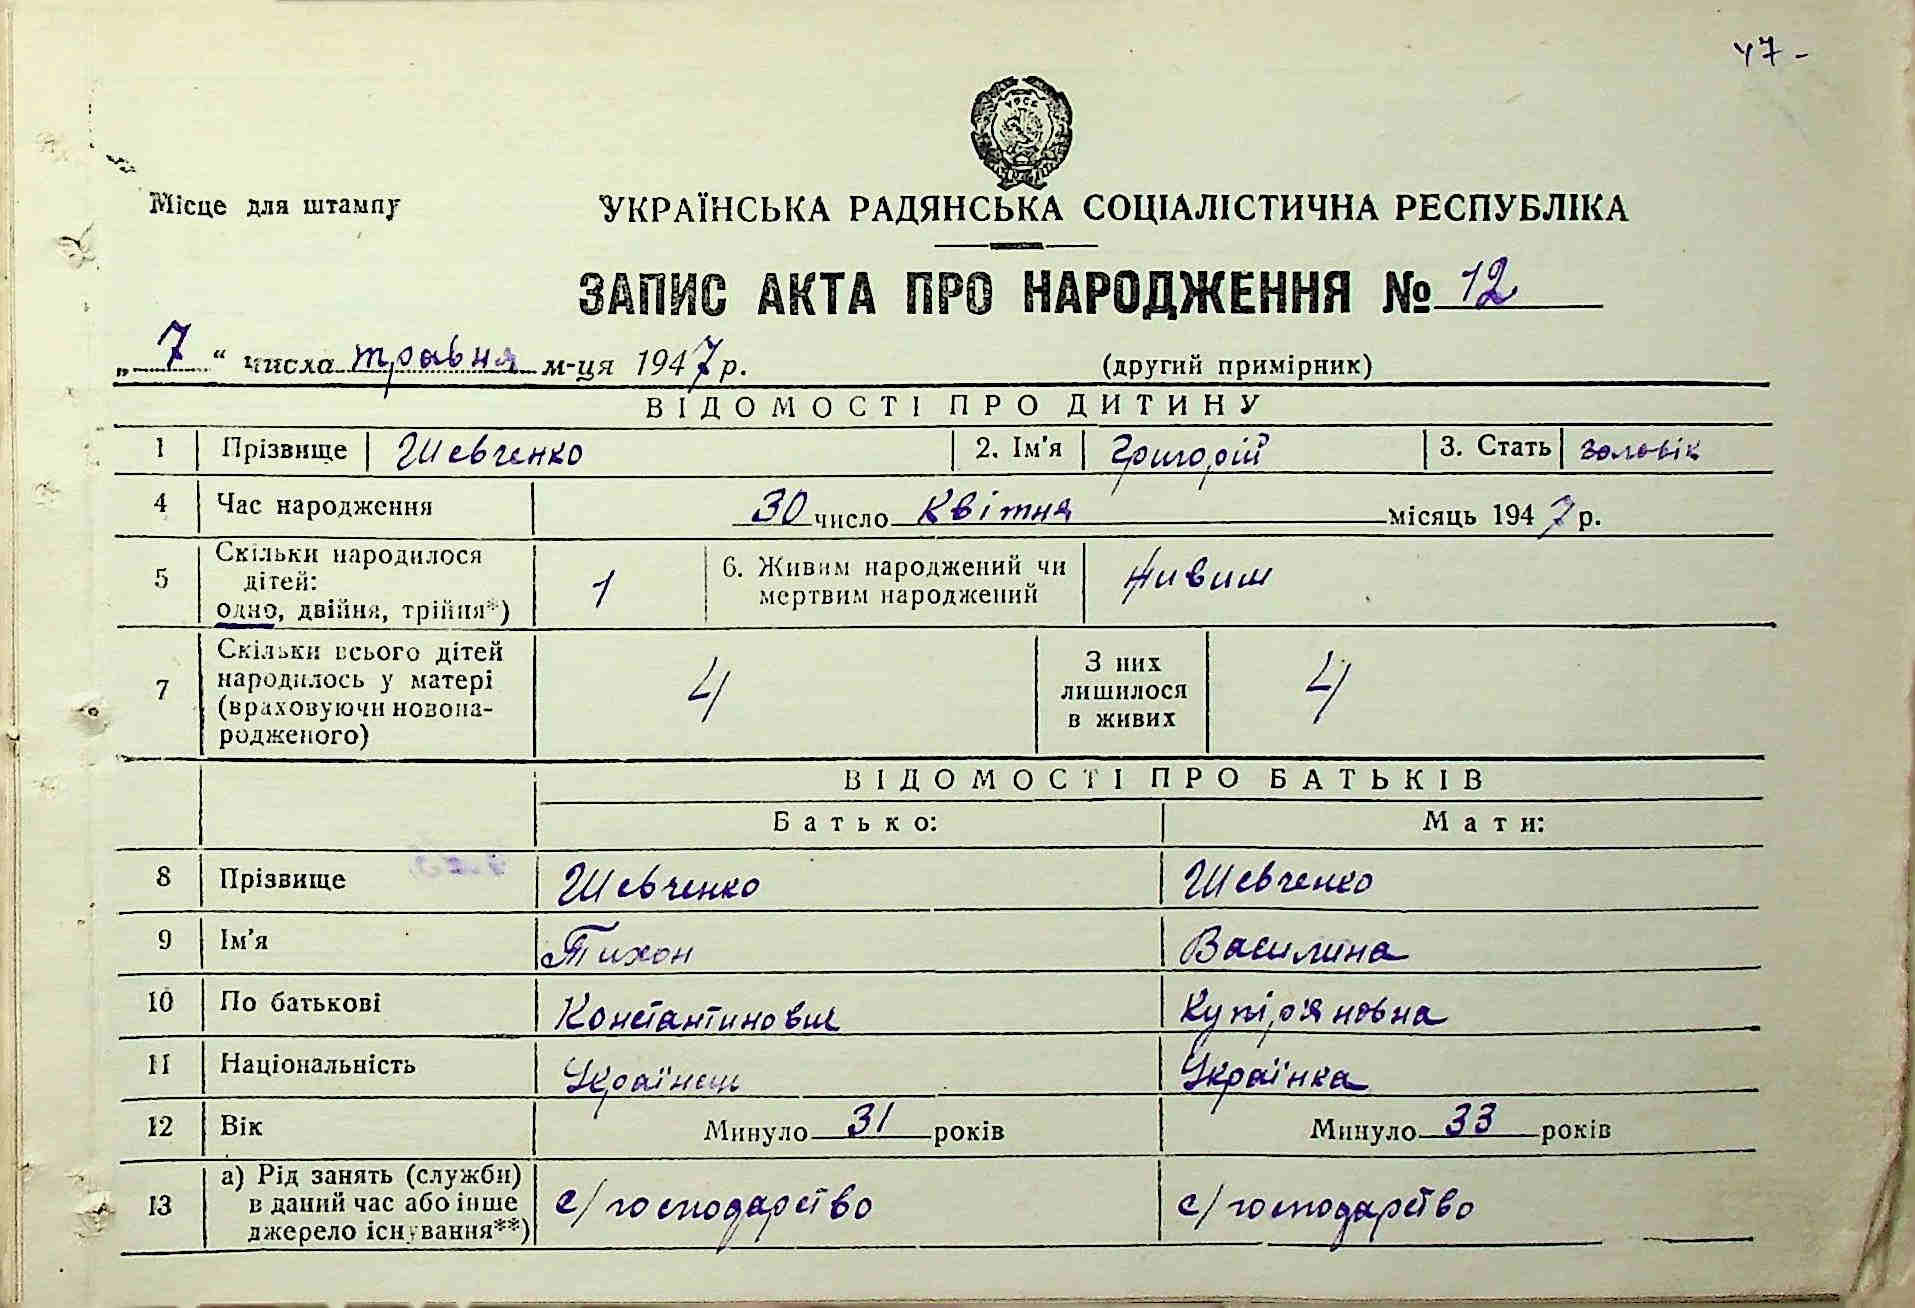 47 -
УРСР
Місце для штампу
УКРАЇНСЬКА РАДЯНСЬКА СОЦІАЛІСТИЧНА РЕСПУБЛІКА
ЗАПИС АКТА ПРО НАРОДЖЕННЯ № 12
„ 7 “ числа травня м-ця 1947 р. (другий примірник)
ВІДОМОСТІ ПРО ДИТИНУ
1 Прізвище Шевченко 2. Ім'я Григорій 3. Стать чоловік
4 Час народження 30 число Квітня місяць 1947 р.
5 Скільки народилося
дітей:
одно, двійня, трійня*)
1
6. Живим народжений чи
мертвим народжений
живим
7 Скільки всього дітей
народилось у матері
(враховуючи новона-
родженого)
4
З них
лишилося
в живих
4
ВІДОМОСТІ ПРО БАТЬКІВ
Батько: Мати:
8 Прізвище Шевченко Шевченко
9 Ім'я Тихон Василина
10 По батькові Константинович Купір'яновна
11 Національність Українець Українка
12 Вік Минуло 31 років Минуло 33 років
13 а) Рід занять (служби)
в даний час або інше
джерело існування**)
с/господарство с/господарство